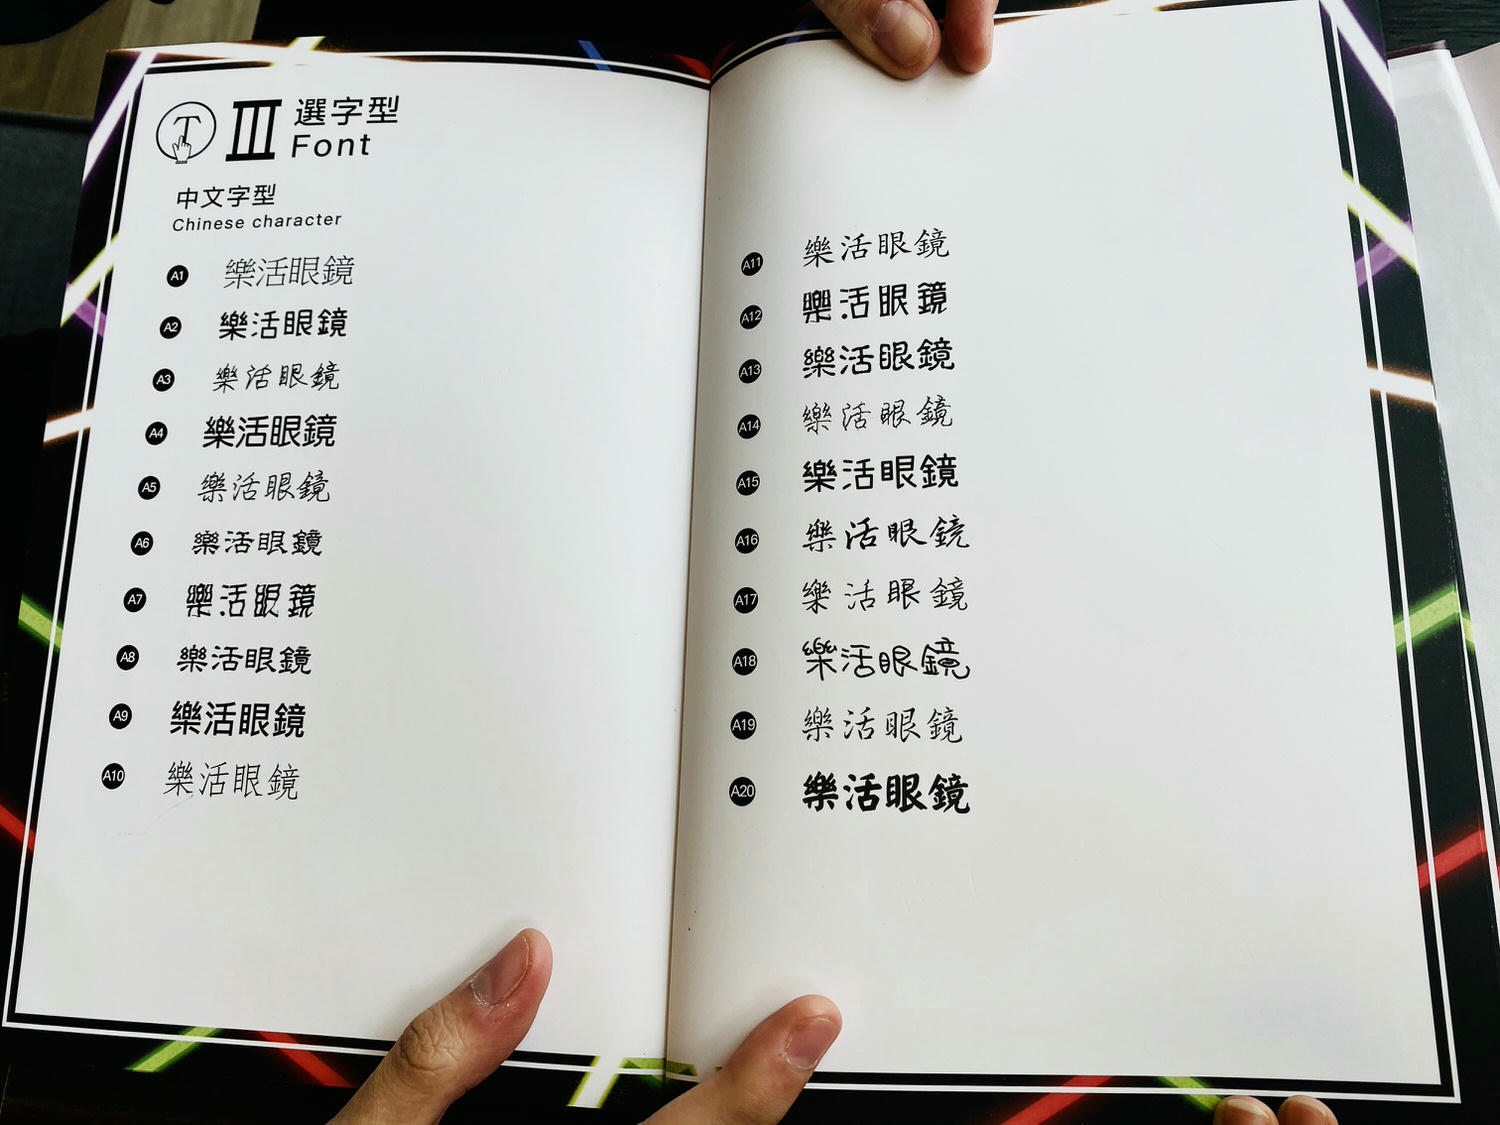 T
III
選字型
Font
中文字型
Chinese character
A1 樂活眼鏡
A2 樂活眼鏡
A3 樂活眼鏡
A4 樂活眼鏡
A5 樂活眼鏡
A6 樂活眼鏡
A7 樂活眼鏡
A8 樂活眼鏡
A9 樂活眼鏡
A10 樂活眼鏡
A11 樂活眼鏡
A12 樂活眼鏡
A13 樂活眼鏡
A14 樂活眼鏡
A15 樂活眼鏡
A16 樂活眼鏡
A17 樂活眼鏡
A18 樂活眼鏡
A19 樂活眼鏡
A20 樂活眼鏡